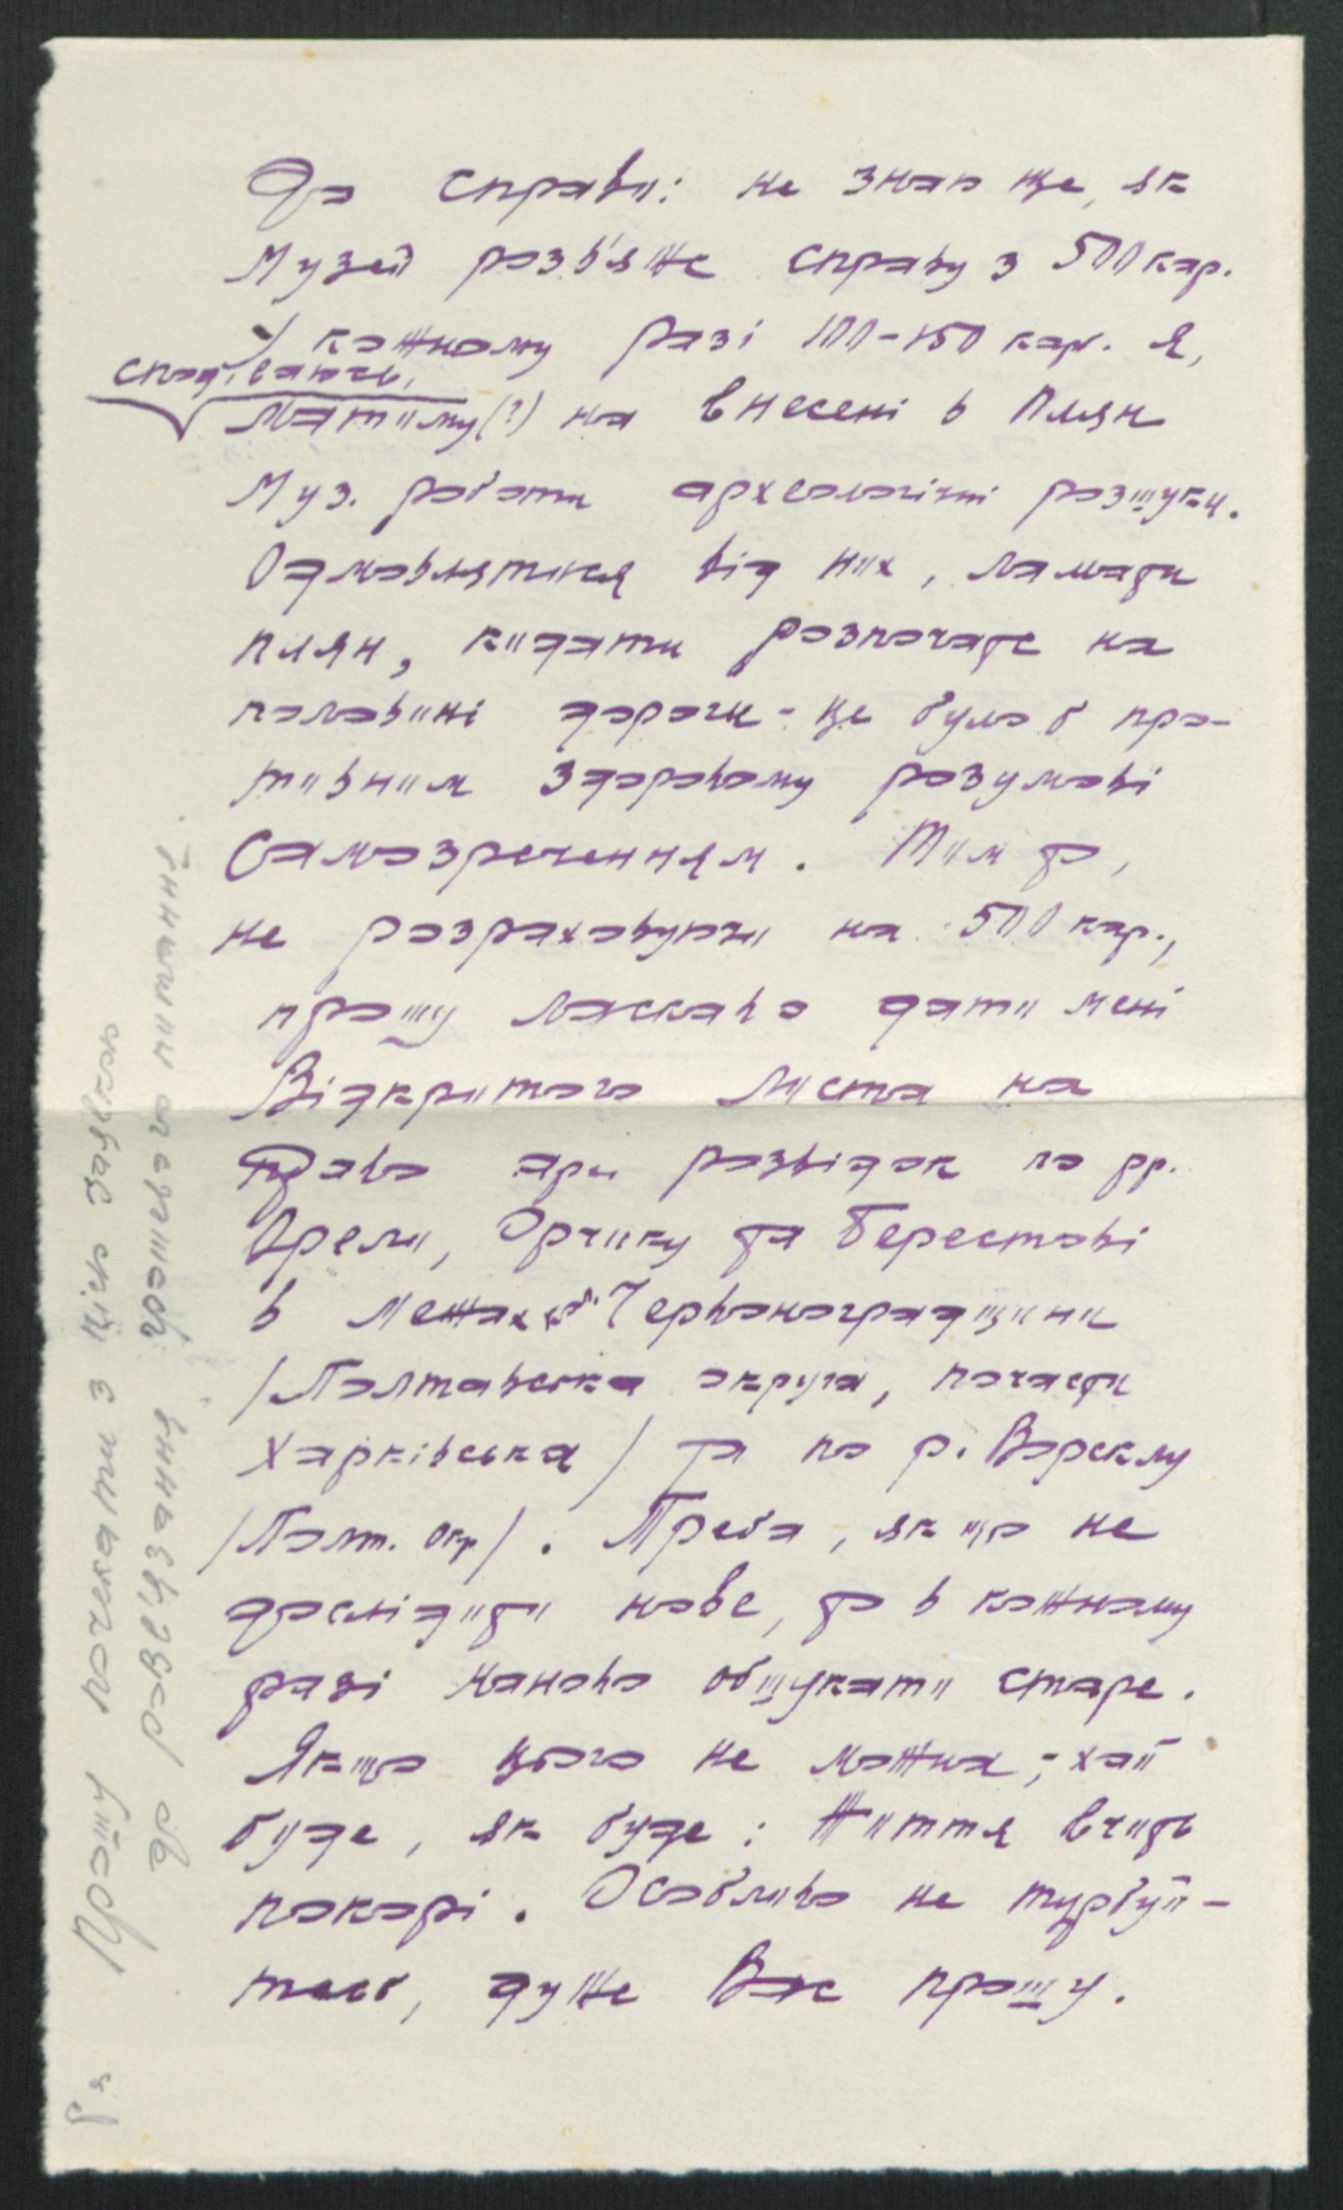 До справи: не знаю ще, як
Музей розв'яже справу з 500 кар.
У кожному разі 100-150 карб. я,
сподіваюсь,
матиму (?) на внесені в Плян
Муз. роботи археологічні розшуки.
Одмовлятися від них, ламати
плян, кидати розпочате на
половині дороги - це було б про-
тивним здоровому розумові
Самозреченням. Тим то,
не розраховуючи на 500 кар.,
прошу ласкаво дати мені
Відкритого листа на
право арх. розвідок по рр.
Орели, Орчику та Берестові
в межах Червоноградщини
/Полтавська округа, почасти
Харківська/ та по р. Ворсклу
/Полт. окр/. Треба, якщо не
дослідити нове, то в кожному
разі наново обшукати старе.
Якщо цього не можна, - хай
буде, як буде: Життя вчить
покорі. Особливо не турбуй-
тесь, дуже Вас прошу.
До розвідування
почекати з цім